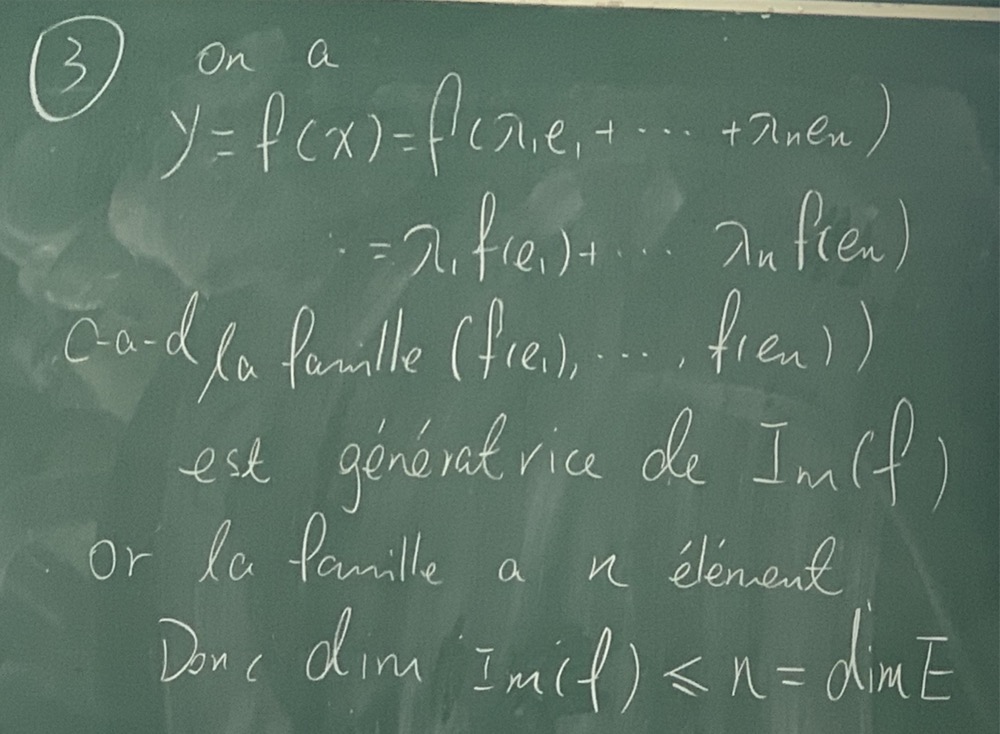 ③ on a
y = f(x) = f(λ₁e₁ + ... + λₙeₙ)
= λ₁ f(e₁) + ... λₙ f(eₙ)
c-a-d la famille (f(e₁), ..., f(eₙ))
est génératrice de Im(f)
or la famille a n élément
Donc dim Im(f) ≤ n = dim E